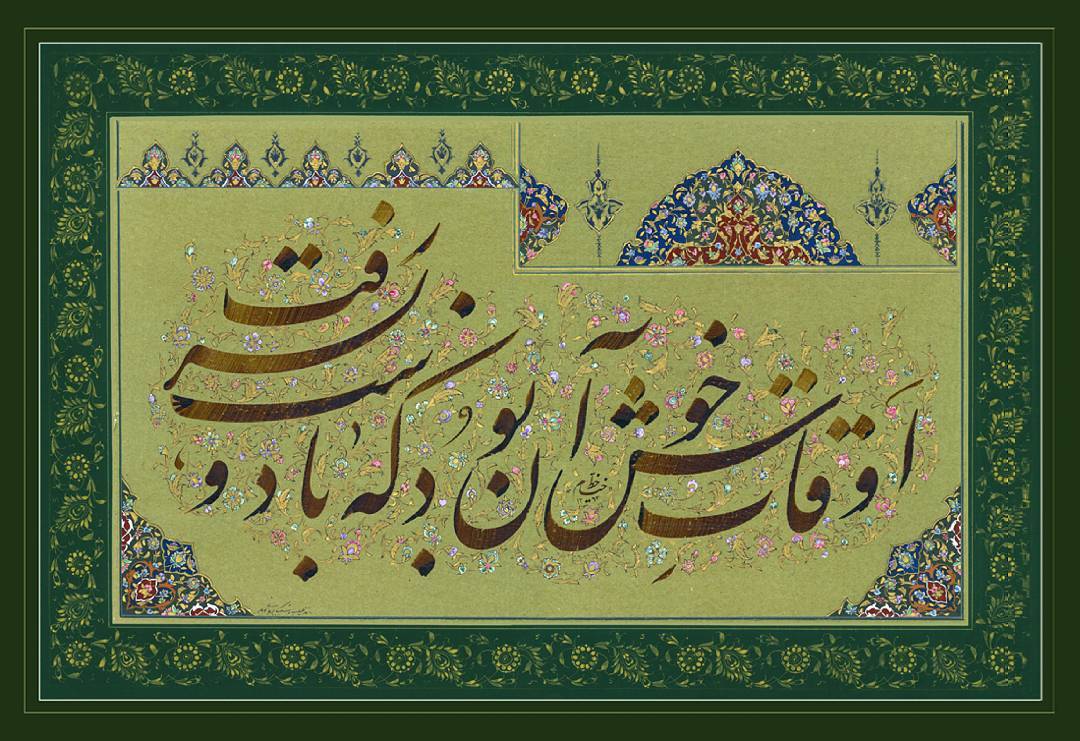 اوقاتِ خوش آن بود که با دوست بسر رفت